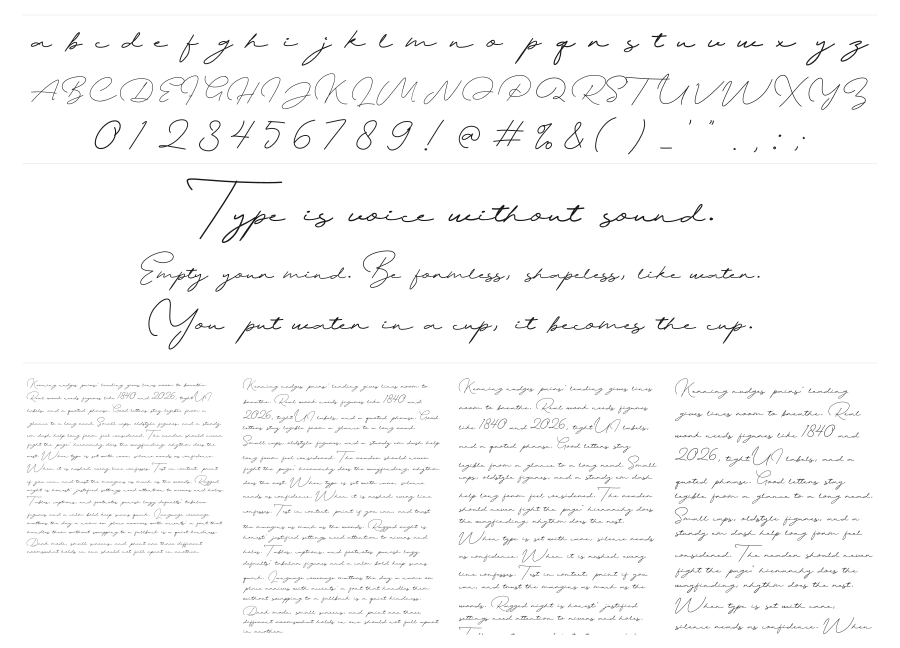 a b c d e f g h i j k l m n o p q r s t u v w x y z
A B C D E F G H I J K L M N O P Q R S T U V W X Y Z
0 1 2 3 4 5 6 7 8 9 ! @ # % & ( ) _ ' " . , : ;
Type is voice without sound.
Empty your mind. Be formless, shapeless, like water.
You put water in a cup, it becomes the cup.
Kerning nudges pairs; leading gives lines room to breathe.
Real work needs figures like 1840 and 2026, tight UI
labels, and a quoted phrase. Good letters stay legible from a
glance to a long read. Small caps, oldstyle figures, and a steady
en dash help long form feel considered. The reader should never
fight the page; hierarchy does the wayfinding, rhythm does the
rest. When type is set with care, silence reads as confidence.
When it is rushed, every line confesses. Test in context, print
if you can, and trust the margins as much as the words. Ragged
right is honest; justified setting need attention to rivers and holes.
Tables, captions, and footnotes punish lazy defaults; tabular
figures and a calm bold keep rows quiet. Language coverage
matters the day a name or place arrives with accents; a font that
handles them without swapping to a fallback is a quiet kindness.
Dark mode, small screens, and print are three different
rooms; what holds in one should not fall apart in another.
Kerning nudges pairs; leading gives lines room to
breathe. Real work needs figures like 1840 and
2026, tight UI labels, and a quoted phrase. Good
letters stay legible from a glance to a long read.
Small caps, oldstyle figures, and a steady en dash help
long form feel considered. The reader should never
fight the page; hierarchy does the wayfinding, rhythm
does the rest. When type is set with care, silence
reads as confidence. When it is rushed, every line
confesses. Test in context, print if you can, and trust
the margins as much as the words. Ragged right is
honest; justified setting need attention to rivers and
holes. Tables, captions, and footnotes punish lazy
defaults; tabular figures and a calm bold keep rows
quiet. Language coverage matters the day a name or
place arrives with accents; a font that handles them
without swapping to a fallback is a quiet kindness.
Dark mode, small screens, and print are three
different rooms; what holds in one should not fall apart
in another.
Kerning nudges pairs; leading gives lines
room to breathe. Real work needs figures
like 1840 and 2026, tight UI labels,
and a quoted phrase. Good letters stay
legible from a glance to a long read. Small
caps, oldstyle figures, and a steady en dash
help long form feel considered. The reader
should never fight the page; hierarchy does
the wayfinding, rhythm does the rest.
When type is set with care, silence reads
as confidence. When it is rushed, every
line confesses. Test in context, print if you
can, and trust the margins as much as the
words. Ragged right is honest; justified
settings need attention to rivers and holes.
Kerning nudges pairs; leading
gives lines room to breathe. Real
work needs figures like 1840 and
2026, tight UI labels, and a
quoted phrase. Good letters stay
legible from a glance to a long read.
Small caps, oldstyle figures, and a
steady en dash help long form feel
considered. The reader should never
fight the page; hierarchy does the
wayfinding, rhythm does the rest.
When type is set with care,
silence reads as confidence. When